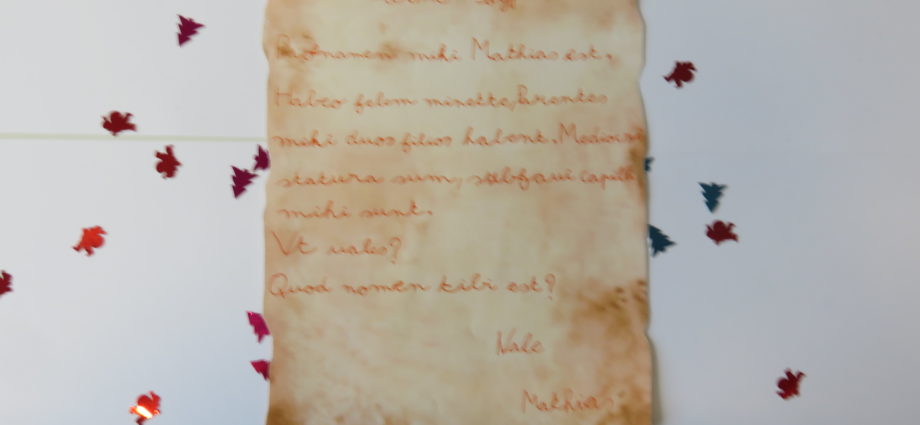 Praenomen mihi Mathias est,
Habeo felem minette, Parentes
mihi duos filios habent. Mediocri
statura sum, et capilli
mihi sunt.
Vt uales?
Quod nomen tibi est?
Vale
Mathias